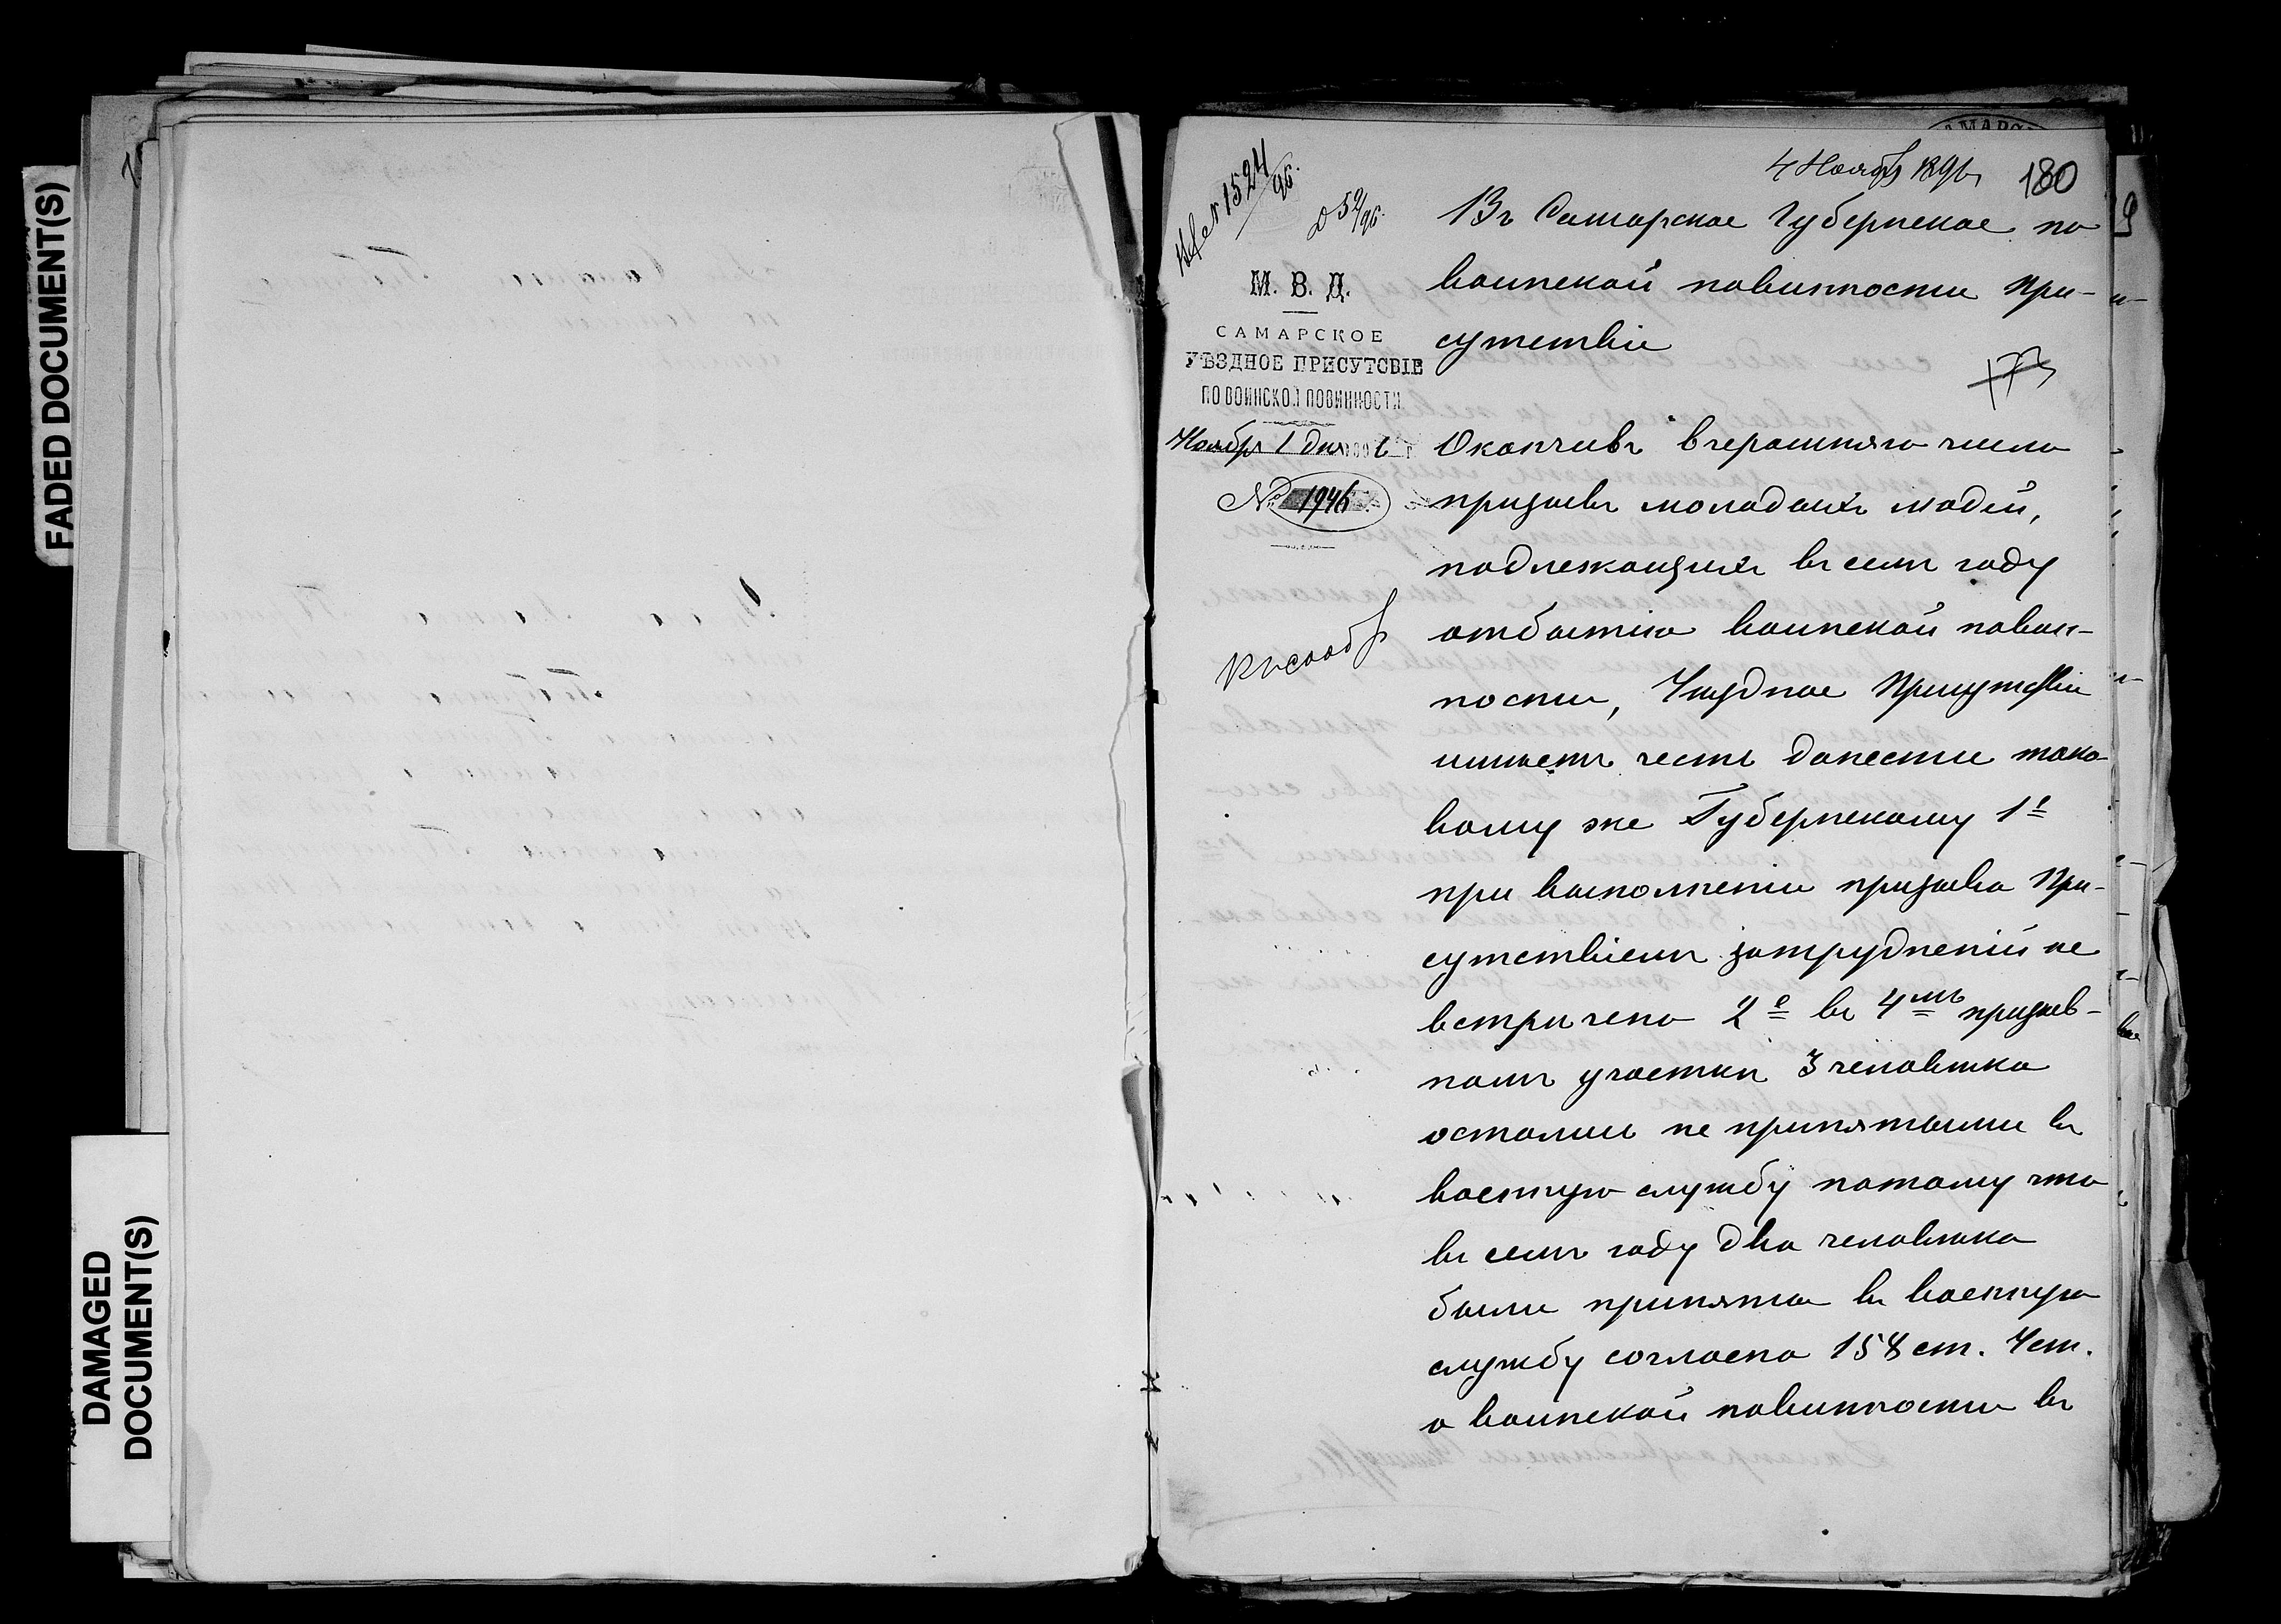 FADED DOCUMENT(S)
DAMAGED
DOCUMENT(S)
4 Ноября 1896
180
№ 1524/96.
Д 52/96.
М. В. Д.
САМАРСКОЕ
УѢЗДНОЕ ПРИСУТСВІЕ
ПО ВОИНСКОЙ ПОВИННОСТИ
Ноябр 1 дня
№ 1946
Къ сообр
173
Въ Самарское Губернское по
воинской повинности При-
сутствіе
Окончивъ вчерашняго числа
призывъ молодыхъ людей,
подлежащихъ въ семъ году
отбытію воинской повин-
ности, Уѣздное Присутствіе
имѣетъ честь донести тако-
вому же Губернскому 1е
при выполненіи призыва При-
сутствіемъ затрудненій не
встрѣчено 2е въ 4мъ призыв-
номъ участкѣ 3 человѣка
остались не принятыми въ
военную службу потому что
въ семъ году два человѣка
были приняты въ военную
службу согласно 158 ст. Уст.
о воинской повинности въ